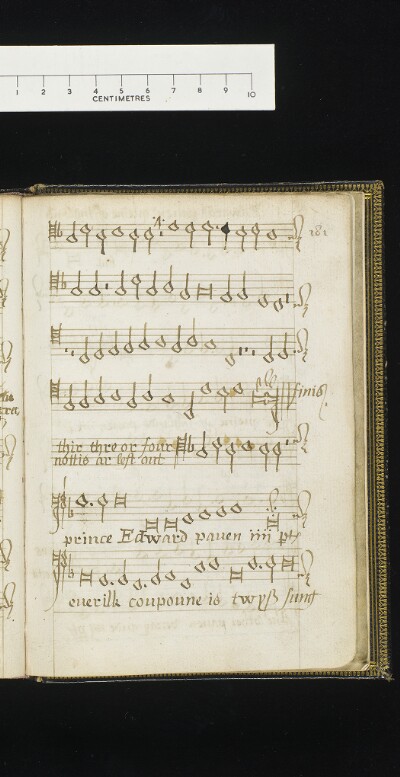 1 2 3 4 5 6 7 8 9 10
CENTIMETRES
.4.
181
finis
thir thre or four
nottis ar left out
prince Edward paven iiij pt
euerilk coupoune is twyß sung